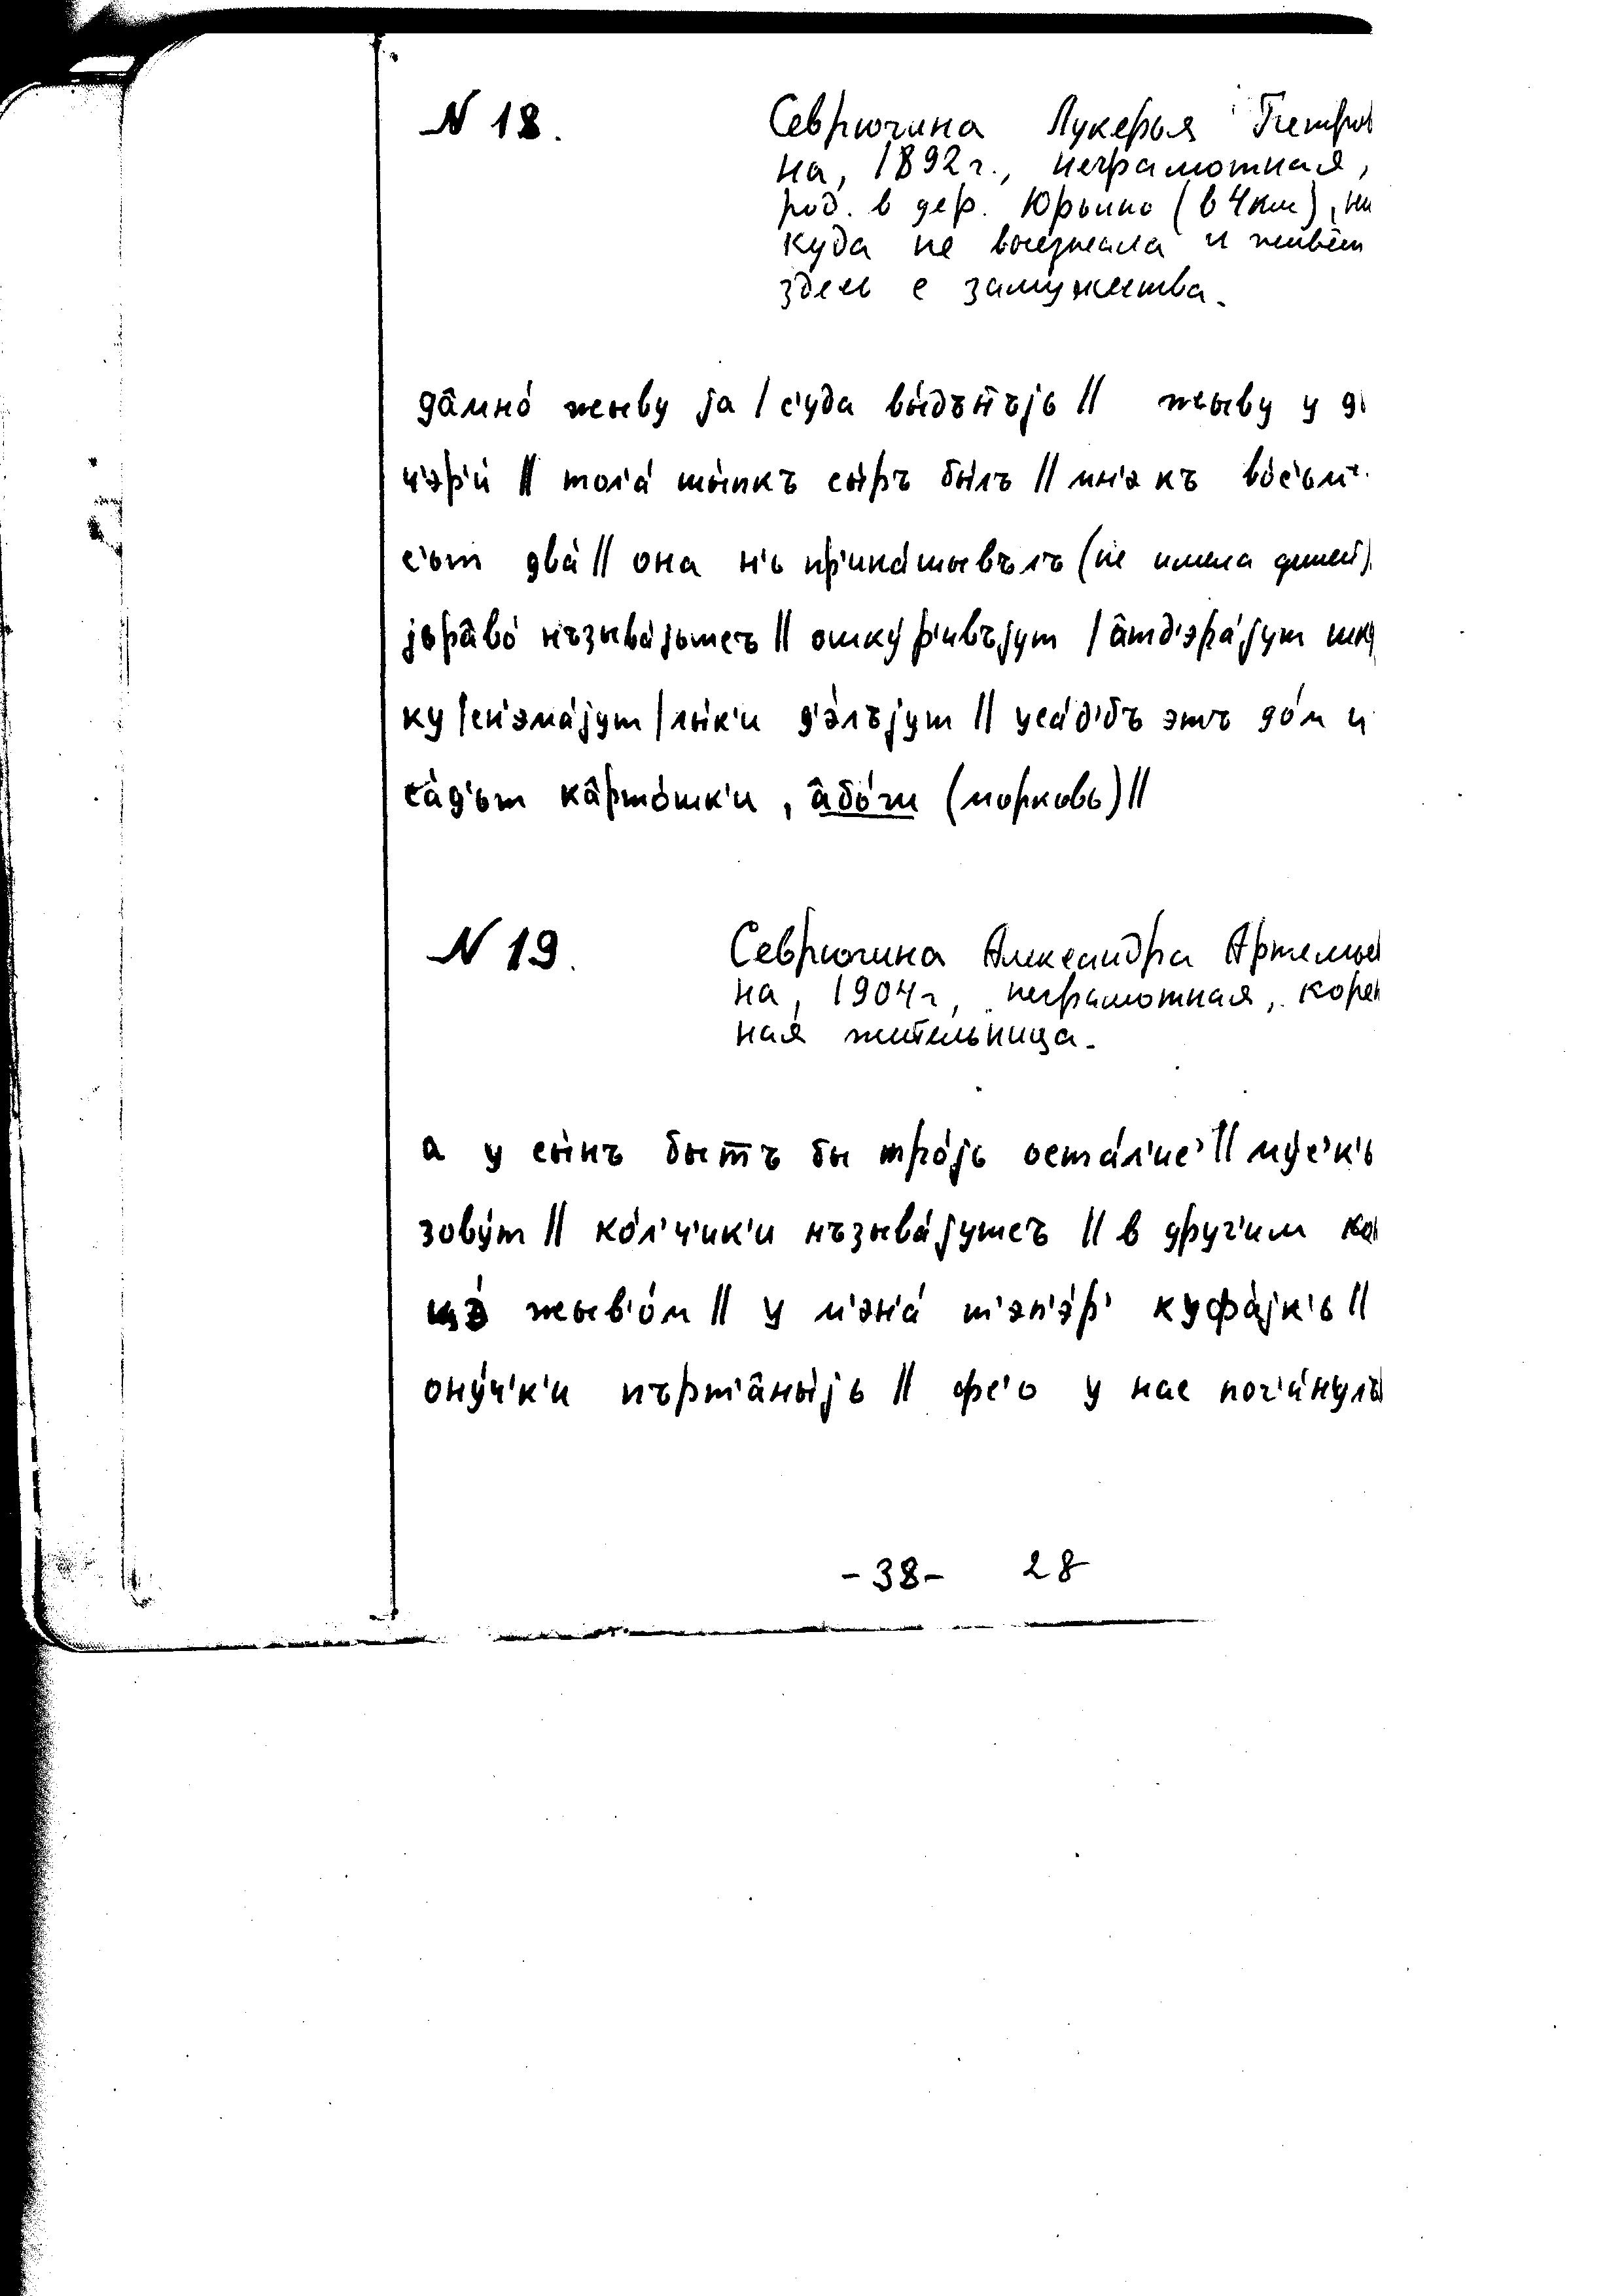 N 18.
Севрюгина Лукерья Петров
на, 1892 г., неграмотная,
род. в дер. Юрьино (в 4 км), ни
куда не выезжала и живёт
здесь с замужества.
да̂мно́ жыву ја / с'уда вы́дън̅ъјь // жыву у д
ч'эр'и́ // тог'а́ шы́пкъ сы́ръ бы́лъ // мн'э къ во́с'ьм'
с'ьт два́ // она н'ь пр'ика́шывълъ (не имела детей)
јьра̂во́ нъзыва́јьтсъ // ошку́р'ивъјут / а̂тд'эра́јут шк
ку / сн'эма́јут / лы́к'и д'э́лъјут // уса́д'бъ этъ до́м и
са́д'ьт ка̂рто́шк'и, а̂бо́ги (морковь) //
N 19.
Севрюгина Александра Артемье
на, 1904 г, неграмотная, корен
ная жительница.
а у сы́нъ быт̅ъ бы тро́јь оста́л'ис' // му́с'к'ь
зову́т // ко́л'ч'ик'и нъзыва́јутсъ // в друг'им ко
цэ́ жыв'о́м // у м'эн'а́ т'эп'э́р' куфа́јк'ь //
ону́ч'к'и пърт'а̂ны́јь // фс'о у нас пог'и́нулъ
-38- 28